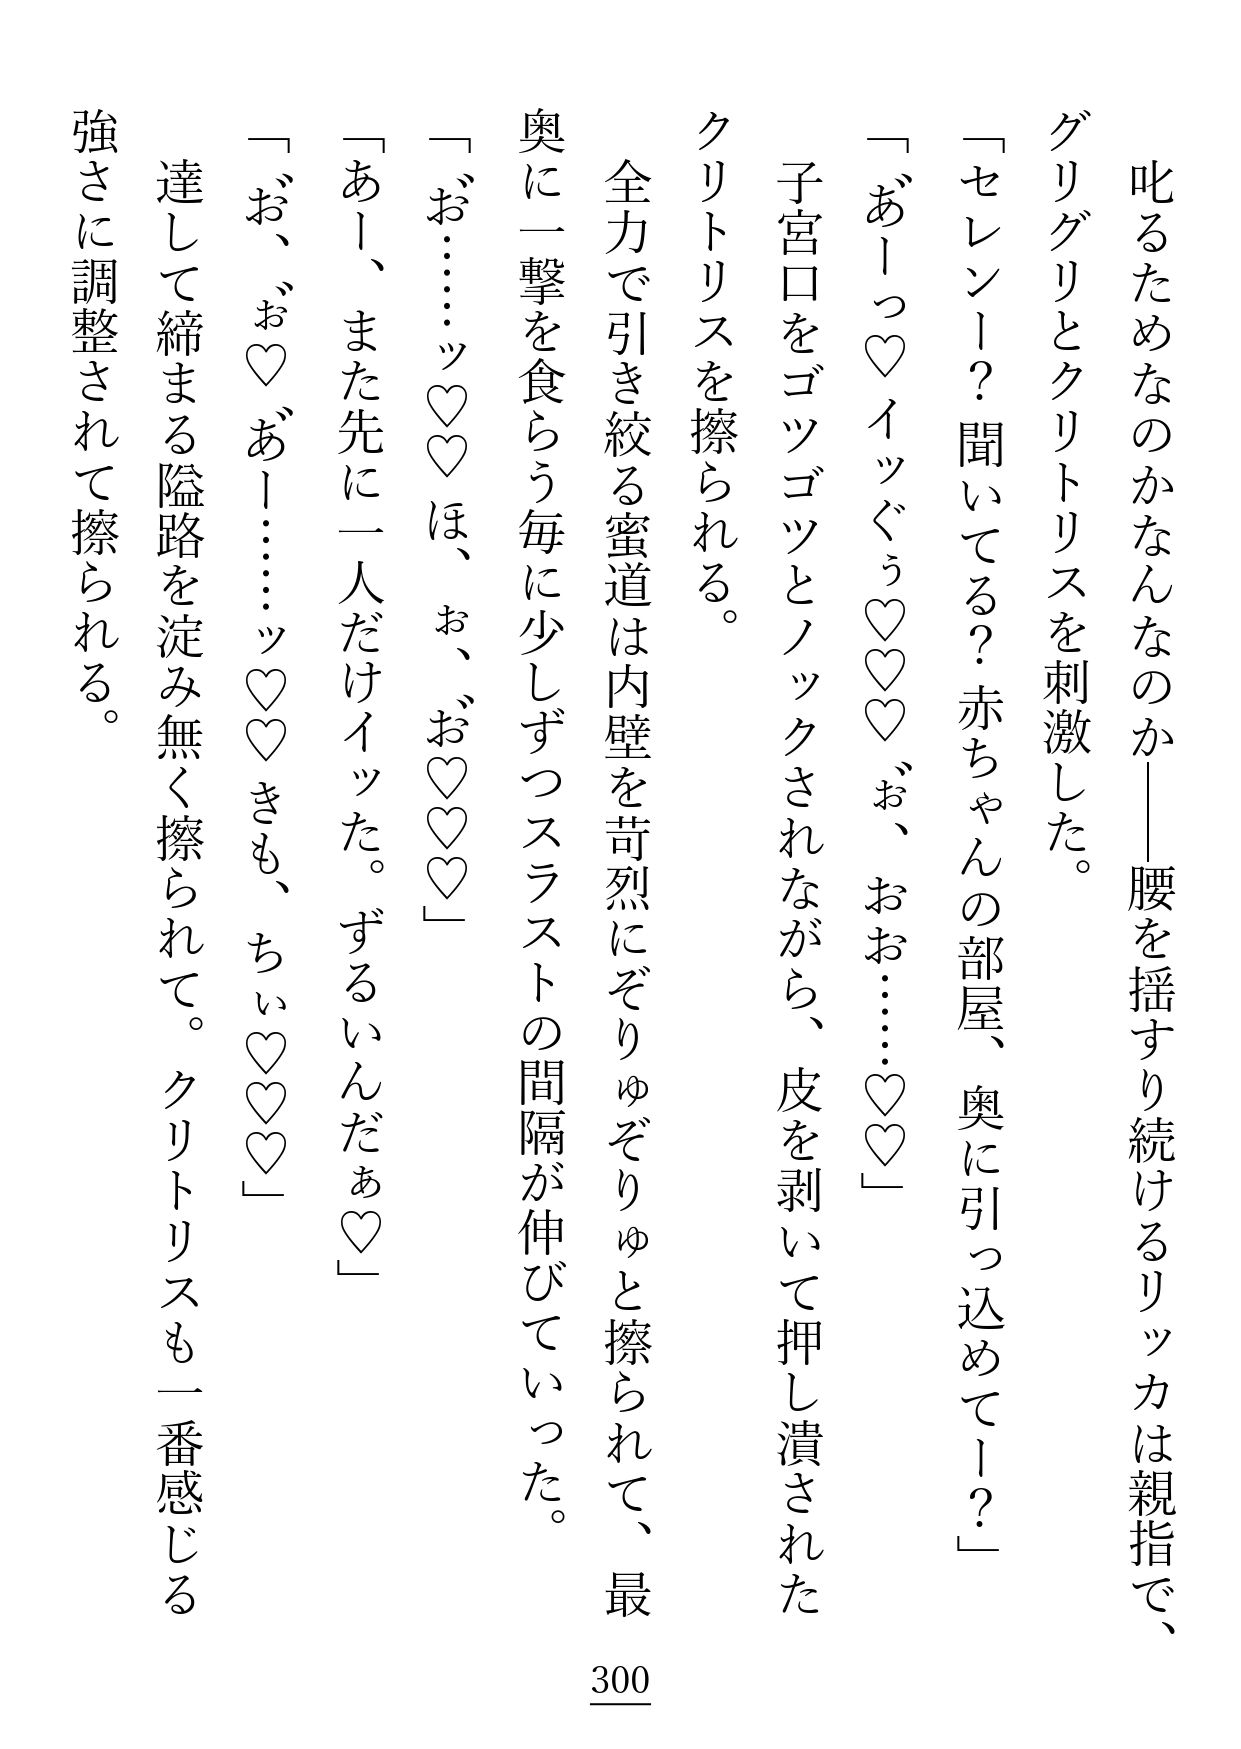 叱るためなのかなんなのか――腰を揺すり続けるリッカは親指で、
グリグリとクリトリスを刺激した。
「セレンー？ 聞いてる？ 赤ちゃんの部屋、奥に引っ込めてー？」
「あ゛ーっ♡ イッぐぅ♡♡♡ ぉ゛、おお……♡♡」
子宮口をゴツゴツとノックされながら、皮を剥いて押し潰された
クリトリスを擦られる。
全力で引き絞る蜜道は内壁を苛烈にぞりゅぞりゅと擦られて、最
奥に一撃を食らう毎に少しずつスラストの間隔が伸びていった。
「お゛……ッ♡♡ ほ、ぉ、お゛♡♡♡」
「あー、また先に一人だけイッた。ずるいんだぁ♡」
「お゛、ぉ゛♡ あ゛ー……ッ♡♡ きも、ちぃ♡♡♡」
達して締まる隘路を淀み無く擦られて。クリトリスも一番感じる
強さに調整されて擦られる。
300